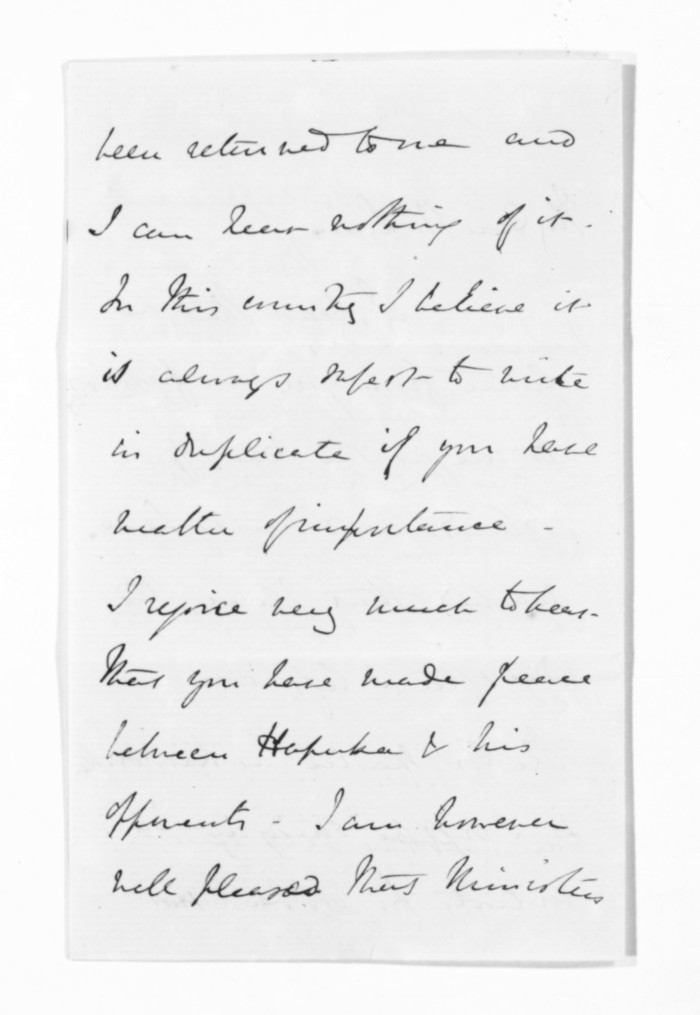 been returned to me and
I can hear nothing of it -
In this country I believe it
is always safest to write
in duplicate if you have
matter of importance -
I rejoice very much to hear
that you have made peace
between Hapuka & his
opponents - I am however
well pleased that Ministers